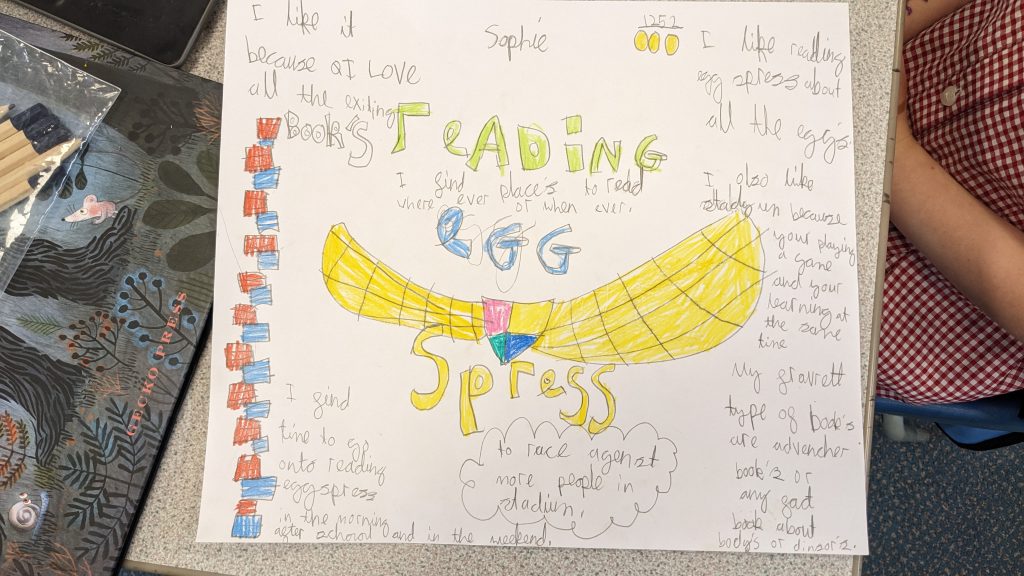 I like it
because I LOVE
all the exiting
BOOK'S
Sophie
1252
I like reading
egg spress about
all the egg's
reADiNG
I find place's to read
where ever or when ever.
eGG
Spress
I also like
stadyum because
your playing
a game
and your
learning at
the same
time
My fravrett
type of book's
are advencher
book's or
any gad
book about
body's or dinsor's.
I find
time to go
onto reading
eggspress
in the morning
after school and in the weekend.
to race agenst
more people in
stadium.
GECKO PRESS